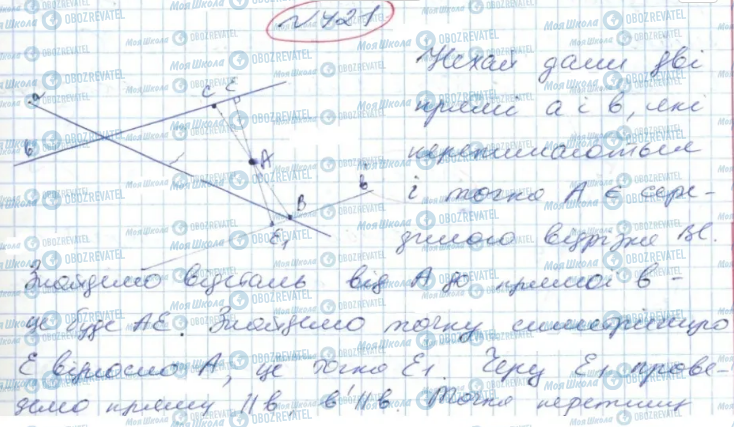 №421
Нехай дани дві
прямі a i b, які
перетинаються
і точка A є сере-
диною відрізка BC.
Знайдемо відстань від A до прямої b -
це буде AE. Знайдемо точку симетричну
E відносно A, це точка E₁. Через E₁ прове-
демо пряму || b, b' || b. Точка перетину
a
b
C
E
A
B
E₁
b
Моя Школа
OBOZREVATEL